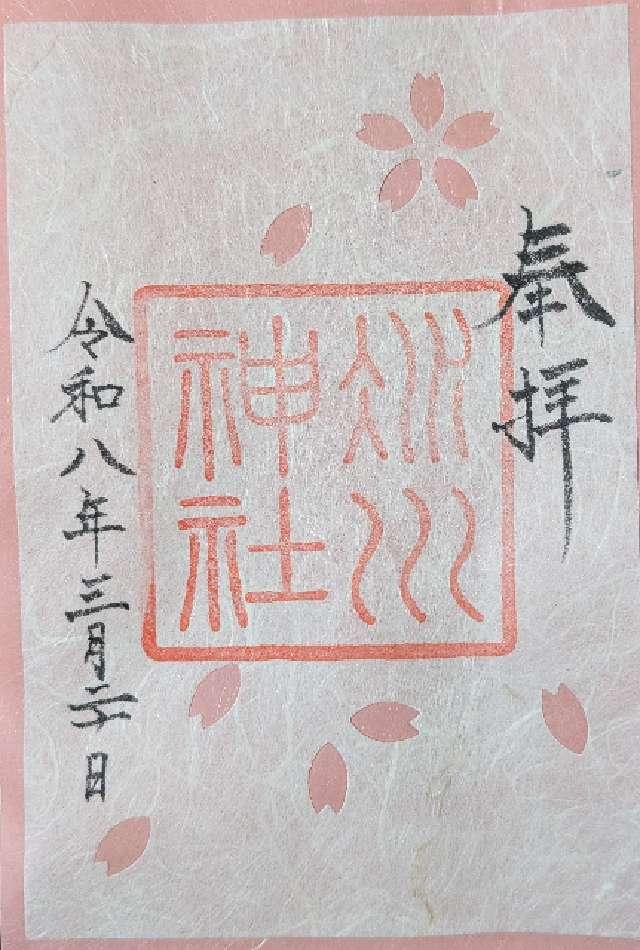 奉拝
氷川
神社
令和八年三月二十日